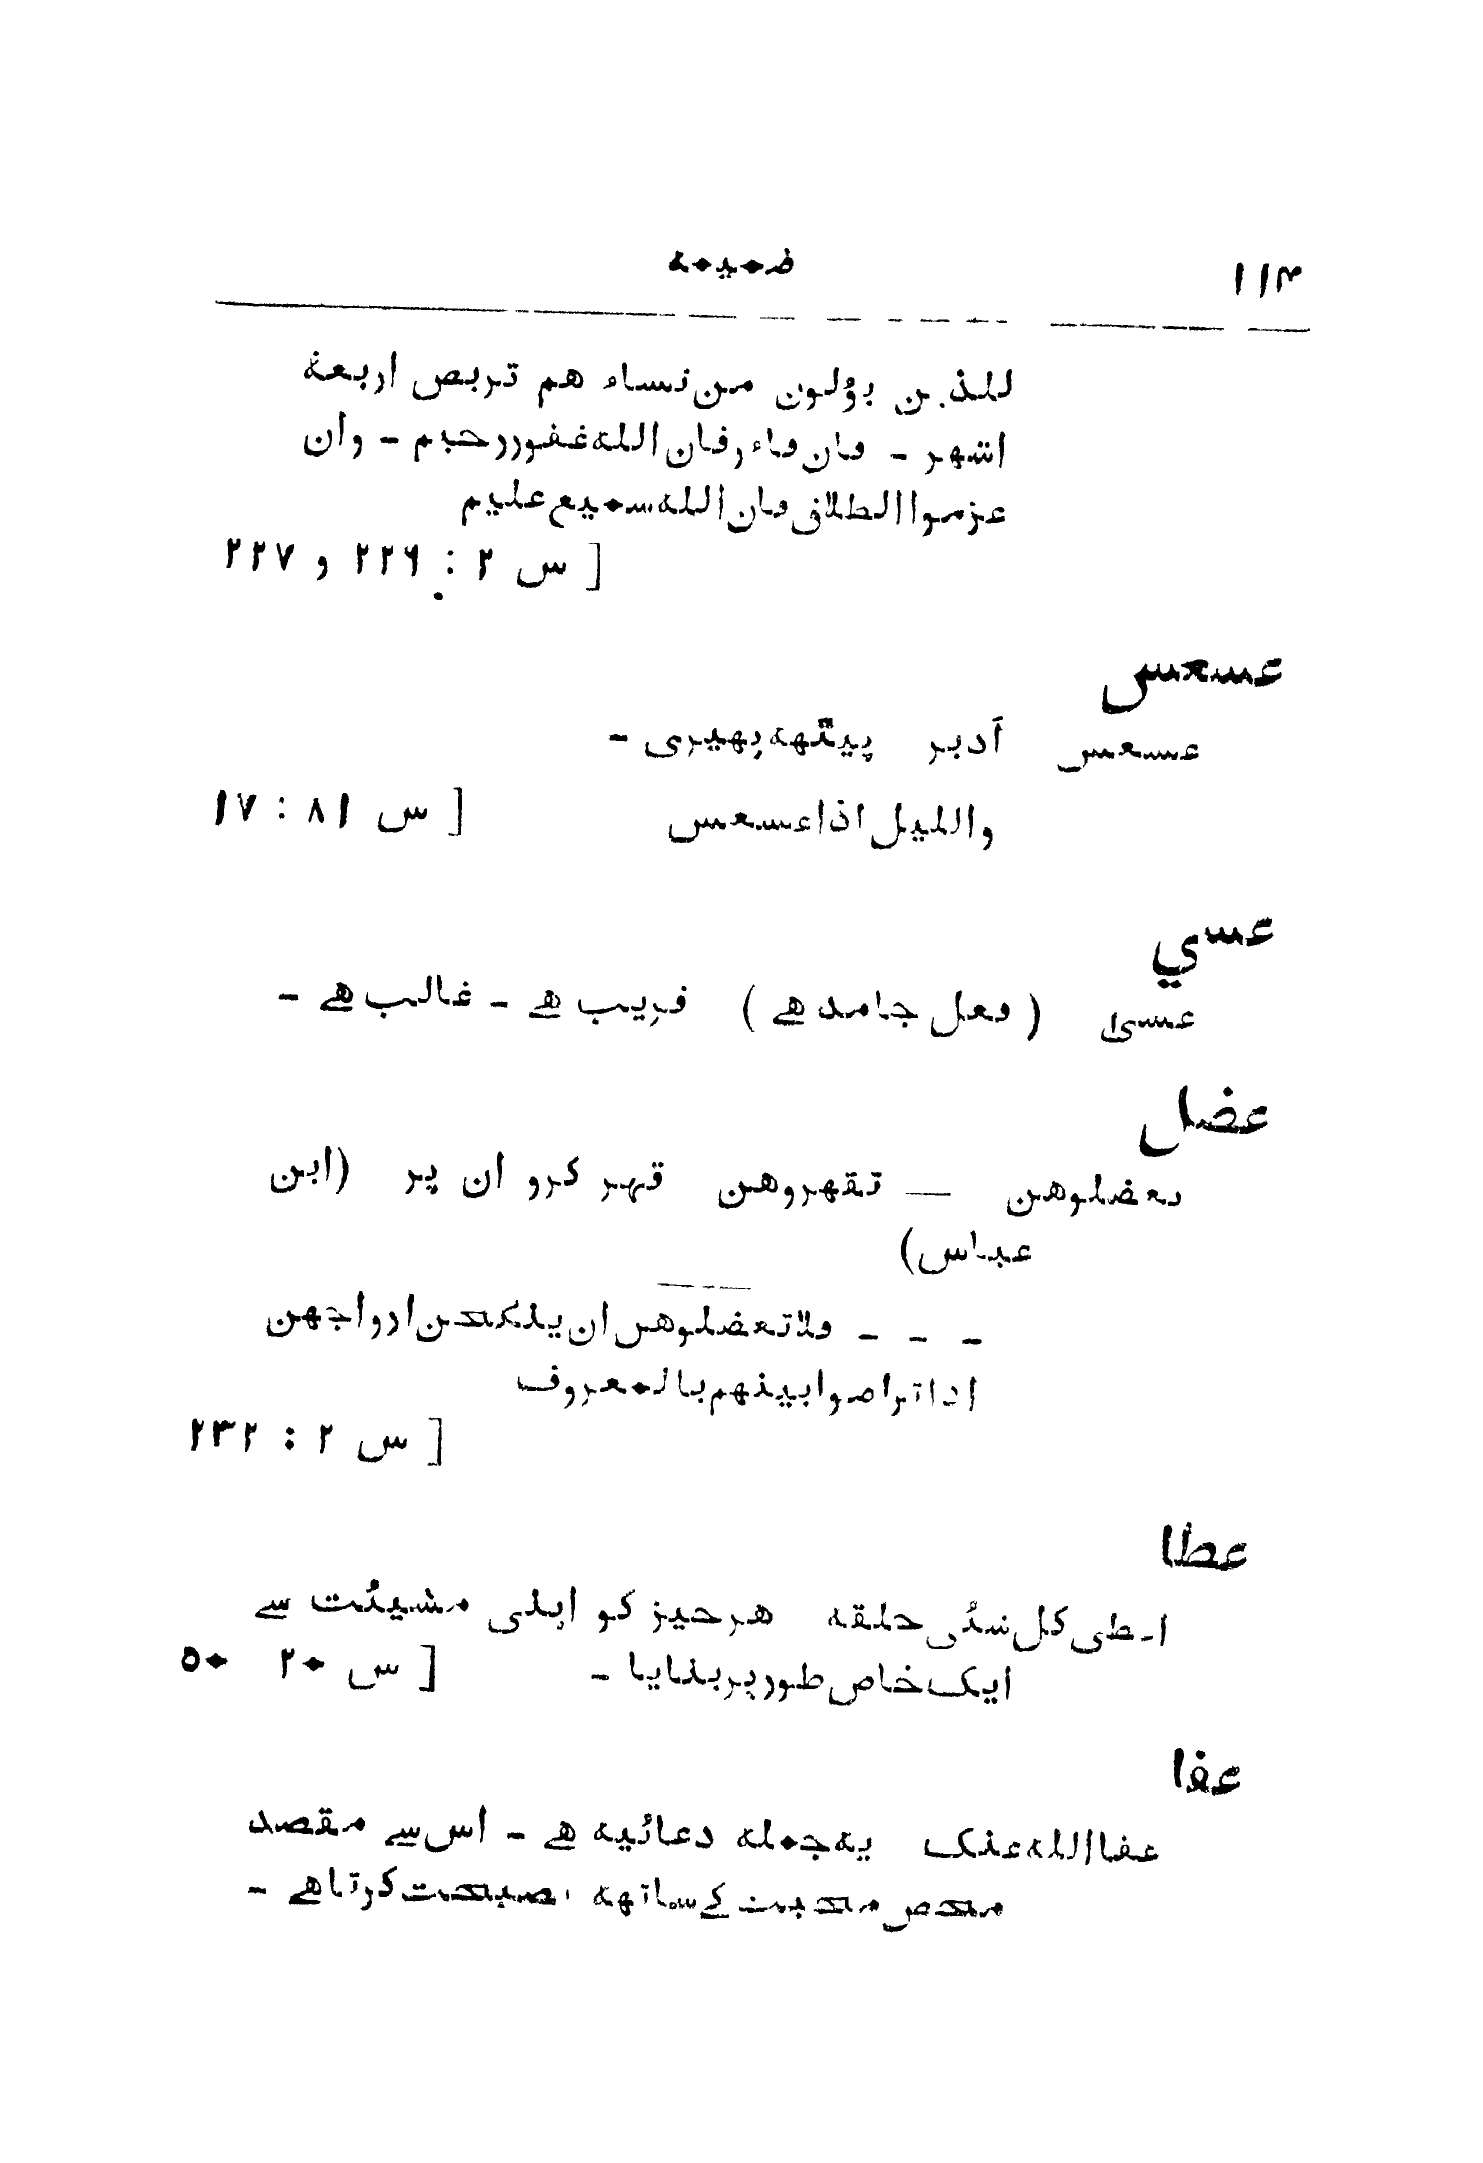 ۱۱۴
ضمیمہ
للذین یؤلون من نساء هم تربص اربعة
اشهر - فان فاء و فان الله غفور رحیم - وان
عزموا الطلاق فان الله سمیع علیم
[ س ۲ : ۲۲۶ و ۲۲۷
عسعس
عسعس أدبر پیٹهه پهیری -
واللیل اذا عسعس [ س ۸۱ : ۱۷
عسي
عسیٰ ( فعل جامد هے ) قریب هے - غالب هے -
عضل
تعضلوهن — تقهروهن قهر کرو ان پر (ابن
عباس)
- - - ولا تعضلوهن ان ینکحن ازواجهن
اذا تراضوا بینهم بالمعروف
[ س ۲ : ۲۳۲
عطا
اعطی کل شئی خلقه هر چیز کو اپنی مشیئت سے
ایک خاص طور پر بنایا - [ س ۲۰ ۵۰
عفا
عفا الله عنک یه جمله دعائیه هے - اس سے مقصد
محض محبت کے ساتهه نصیحت کرنا هے -